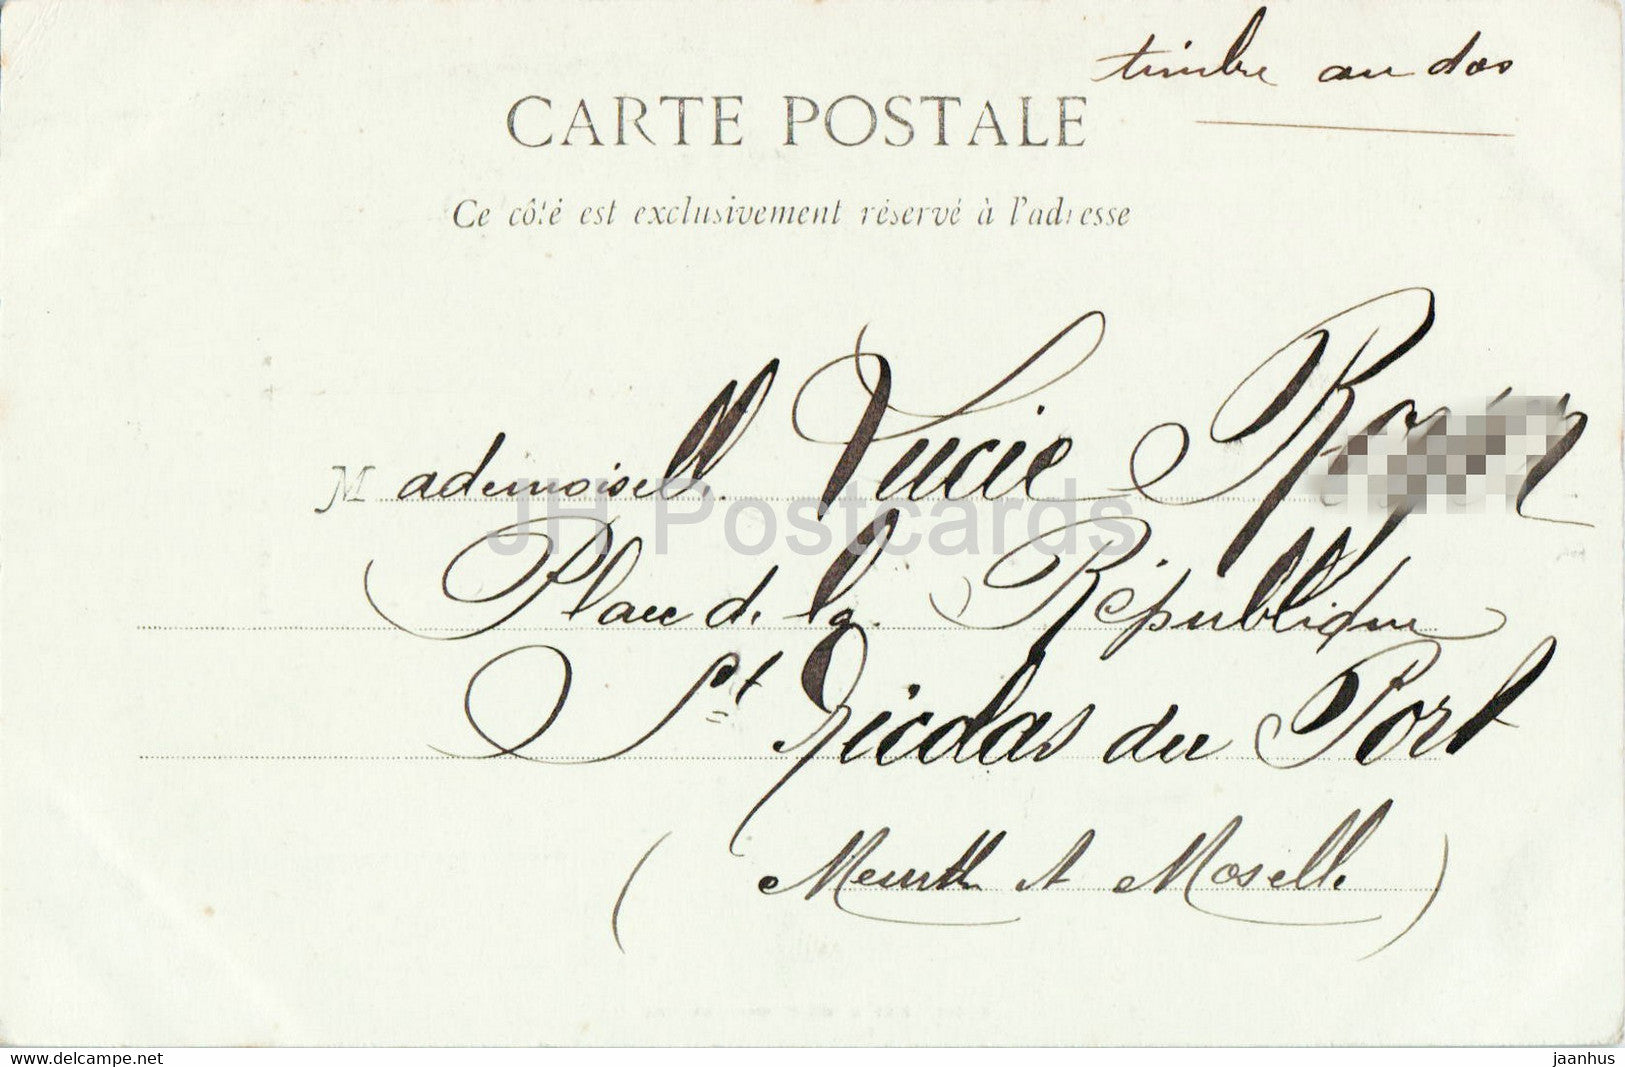 timbre au dos
CARTE POSTALE
Ce côté est exclusivement réservé à l'adresse
Mademoiselle Lucie
JH Postcards
Place de la République
St Nicolas du Port
(Meurthe et Moselle)
www.delcampe.net
jaanhus